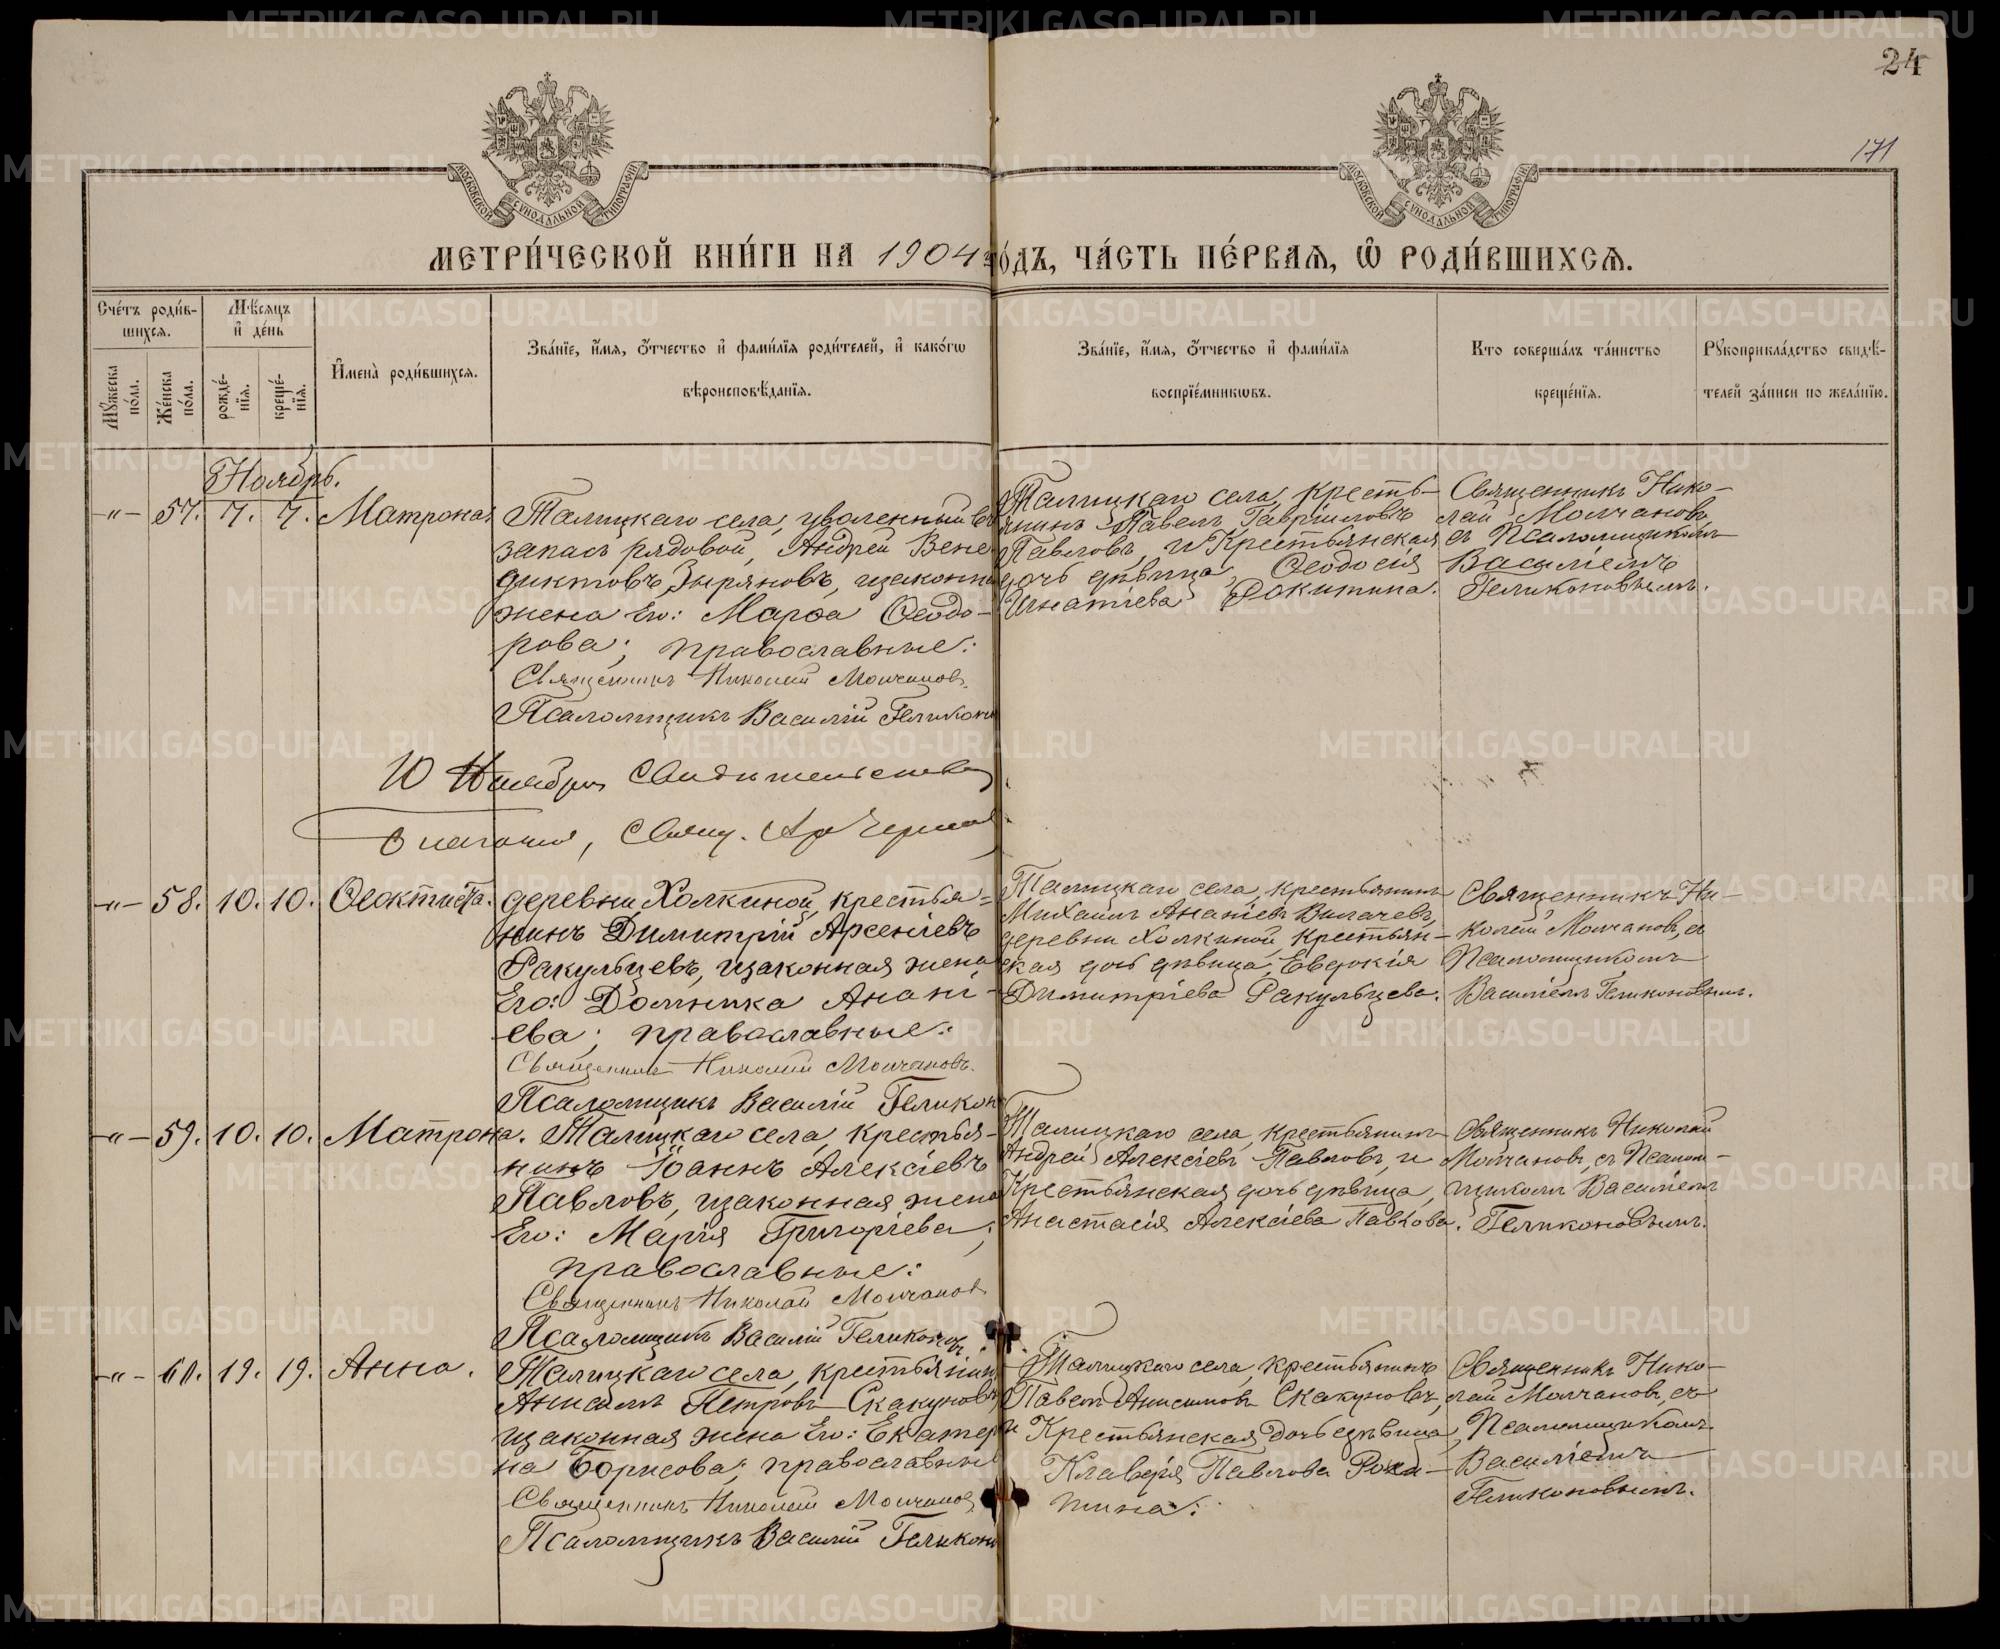 24
171
МЕТРИ́ЧЕСКОЙ КНИ́ГИ НА 1904 ГО́ДЪ, ЧА́СТЬ ПЕ́РВАЯ, Ѡ҆ РОДИ́ВШИХСЯ.
Сче́тъ роди́в-
шихся.
Мѣ́сяцъ
и҆ де́нь
Мꙋ́жеска по́ла.
Же́нска по́ла.
рожде́-
нїя.
креще́-
нїя.
И҆мена̀ роди́вшихся.
Зва́нїе, и҆́мя, ѻ҆́тчество и҆ фами́лїя роди́телей, и҆ како́гѡ
вѣроисповѣ́данїя.
Зва́нїе, и҆́мя, ѻ҆́тчество и҆ фами́лїя
воспрїе́мникѡвъ.
Кто̀ соверша́лъ та́инство
креще́нїя.
Рꙋкоприкла́дство свидѣ́-
телей за́писи по жела́нїю.
Ноябрь.
-"- 57. 7. 7. Матрона.
Талицкаго села, уволенный въ
запасъ рядовой, Андрей Вене
диктовъ Зыряновъ, и законна
жена Его: Марѳа Ѳеодо-
рова; православные:
Священникъ Николай Молчановъ.
Псаломщикъ Василій Геликоно
Талицкаго села, кресть-
янинъ Павелъ Гавріиловъ
Павловъ, и Крестьянская
дочь дѣвица, Ѳеодосія
Игнатіева Рокитина.
Священникъ Нико-
лай Молчановъ,
съ Псаломщикомъ
Василіемъ
Геликоновымъ.
10 Ноября Свидѣтельства
Благочин, Свящ.
-"- 58. 10. 10. Ѳеоктиста.
деревни Холкиной, крестья-
нинъ Димитрій Арсеніевъ
Ракульцевъ, и законная жена
Его: Домника Анані-
ева; православные:
Священникъ Николай Молчановъ.
Псаломщикъ Василій Геликон
Талицкаго села, крестьянинъ
Михаилъ Ананіевъ Вилачевъ,
деревни Холкиной, Крестьян-
ская дочь дѣвица, Евдокія
Димитріева Ракульцева.
Священникъ Ни-
колай Молчановъ, съ
Псаломщикомъ
Василіемъ Геликоновымъ.
-"- 59. 10. 10. Матрона.
Талицкаго села, крестья-
нинъ Іоаннъ Алексіевъ
Павловъ, и законная жена
Его: Марія Григоріева;
православные:
Священникъ Николай Молчанов
Псаломщикъ Василій Геликонов
Талицкаго села, крестьянинъ
Андрей Алексіевъ Павловъ, и
Крестьянская дочь дѣвица,
Анастасія Алексіева Павлова.
Священникъ Николай
Молчановъ, съ Псалом-
щикомъ Василіемъ
Геликоновымъ.
-"- 60. 19. 19. Анна.
Талицкаго села, крестьянин
Анисимъ Петровъ Скакуновъ,
и законная жена Его: Екатери
на Борисова; православны
Священникъ Николай Молчанов
Псаломщикъ Василій Геликоно
Талицкаго села, крестьянинъ
Павелъ Анисимовъ Скакуновъ,
и Крестьянская дочь дѣвица,
Клавдія Павлова Роки-
тина.
Священникъ Нико-
лай Молчановъ, съ
Псаломщикомъ
Василіемъ
Геликоновымъ.